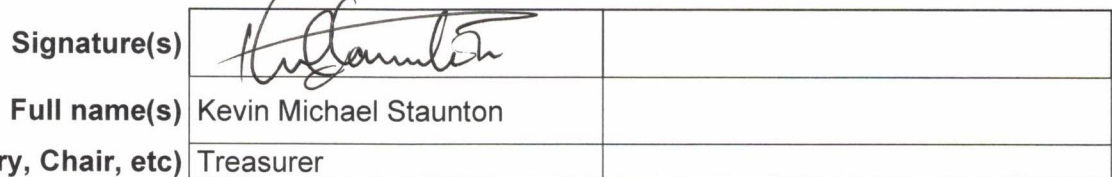 Signature(s)
Full name(s) Kevin Michael Staunton
ry, Chair, etc) Treasurer